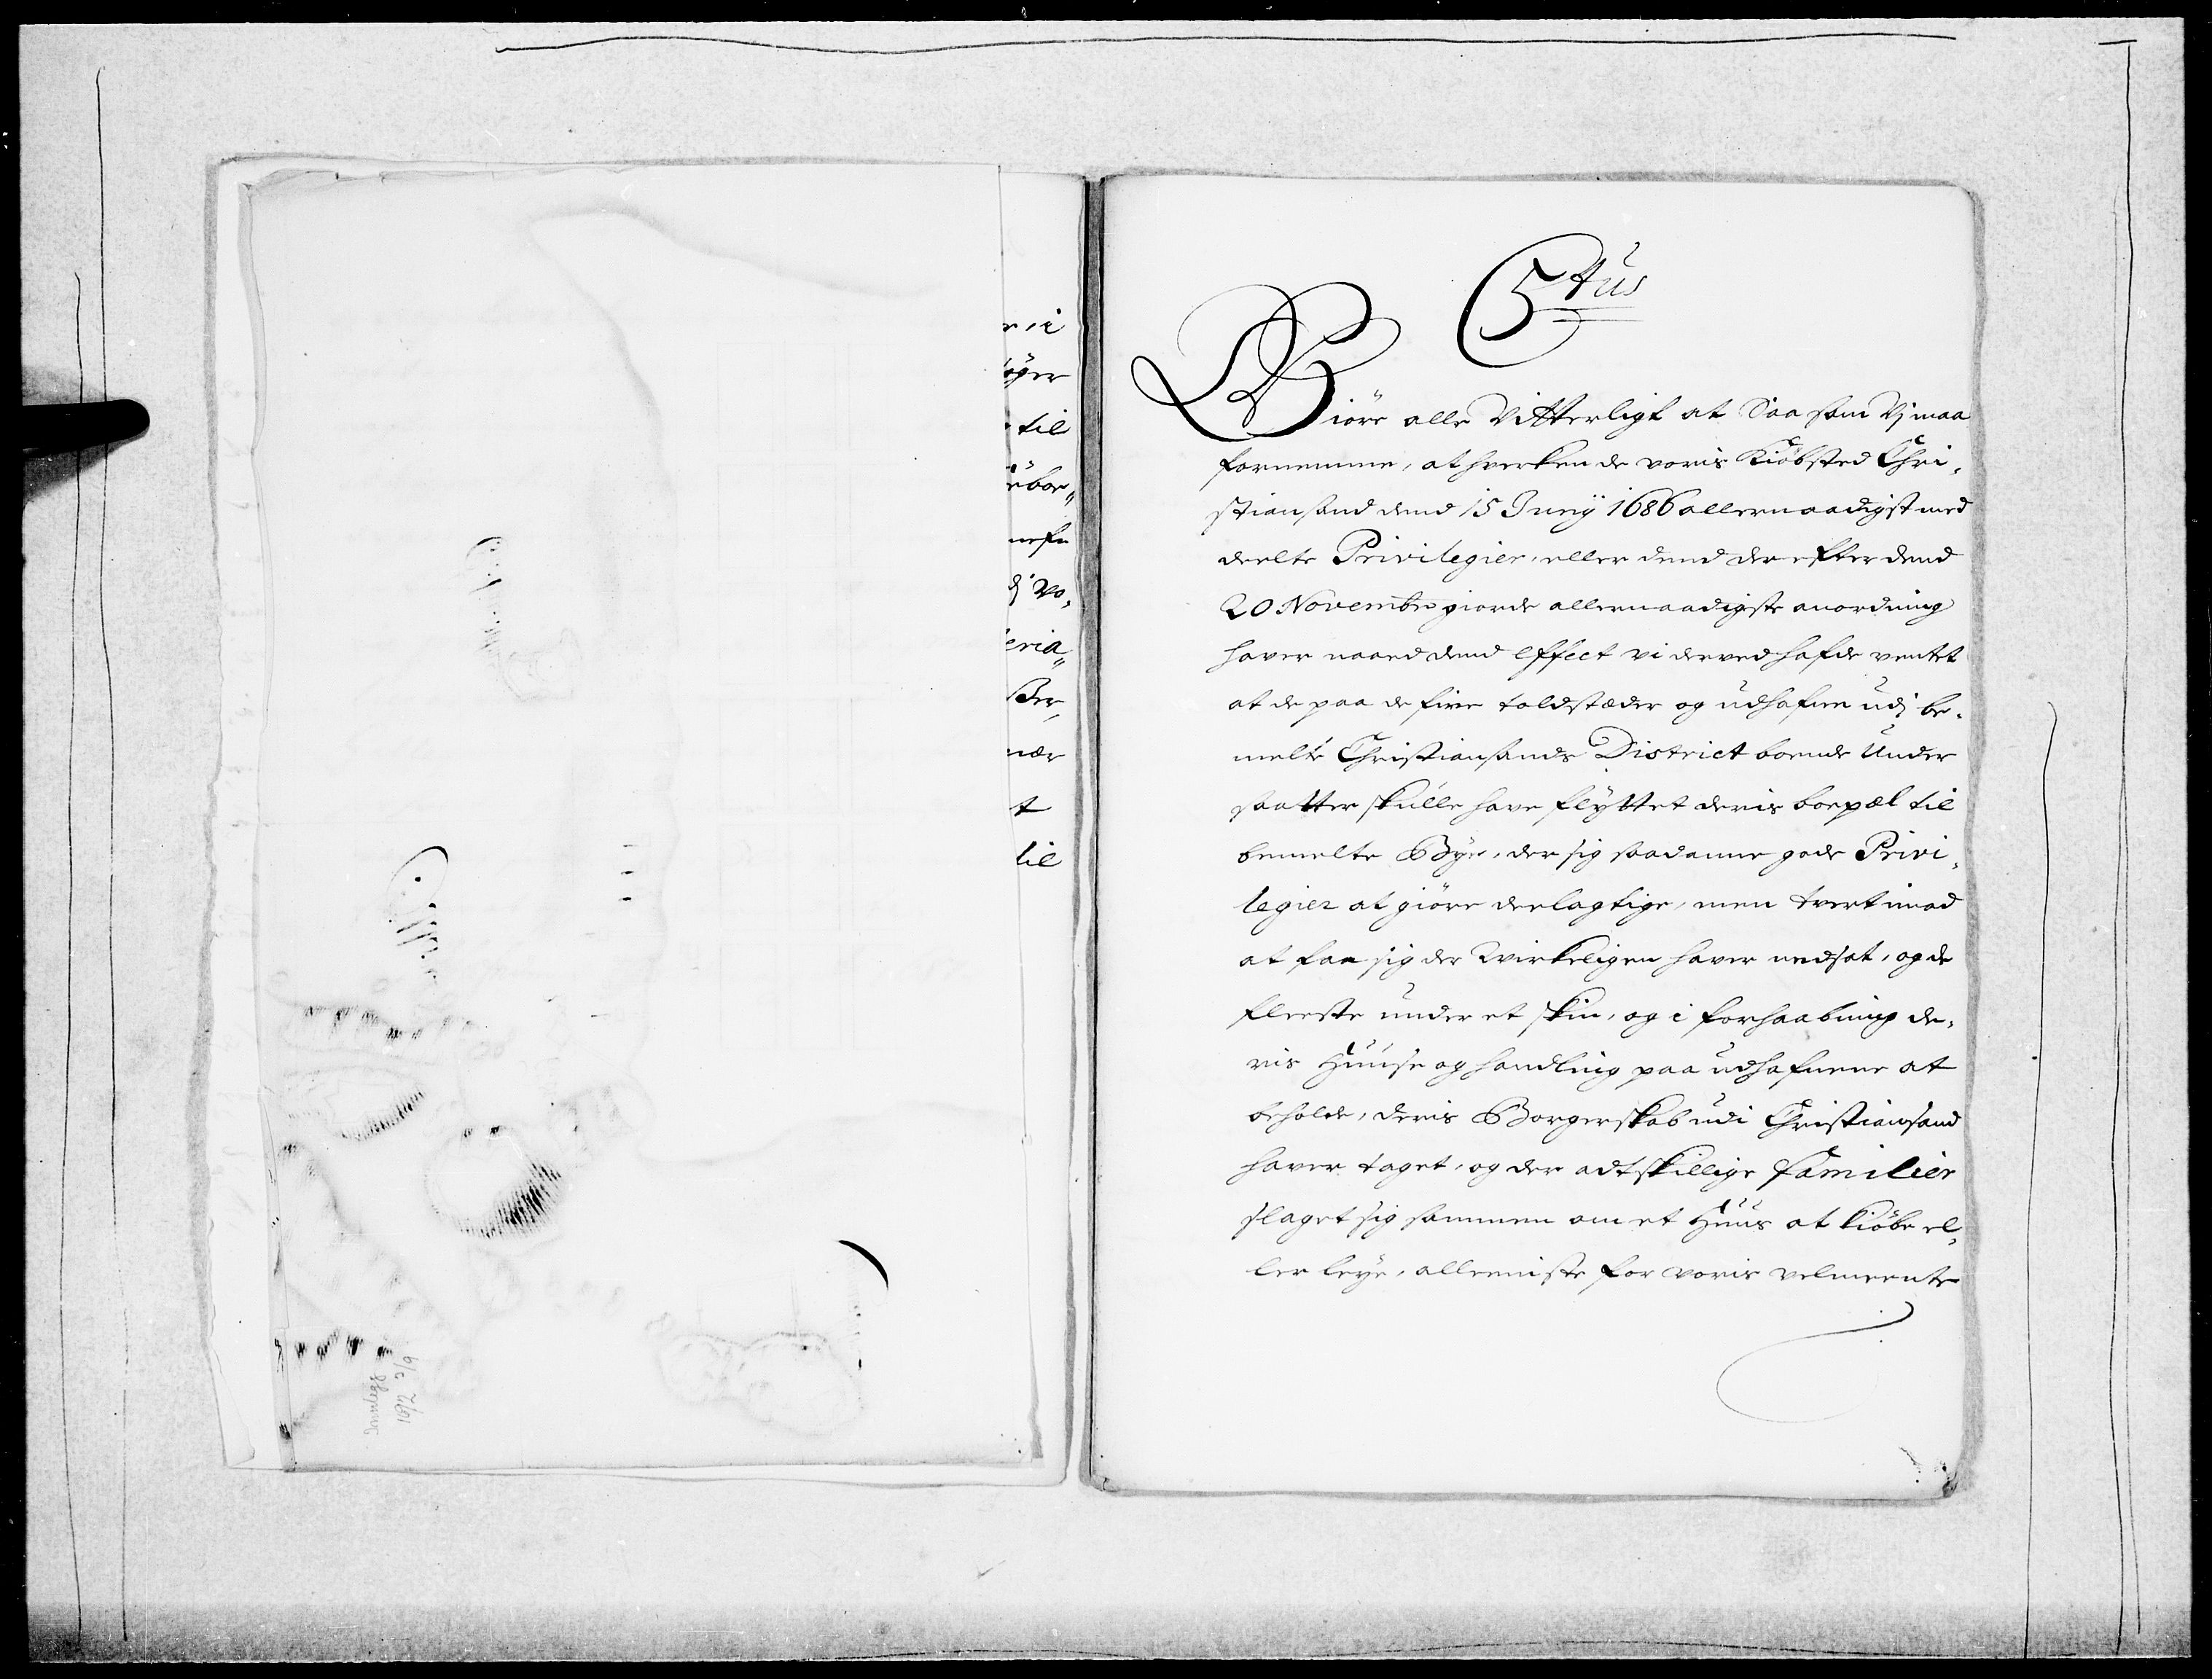 r i
øger
til
ebor„
nefn
dj vo,
eria„
Ber,
nær
t
til
5tus
Giöre alle Vitterligt at Saa som Vj maa
fornemme, at hverken de voris Kiöbsted Chri,
stiansand dend 15 Junij 1686 allernaadigst med
deelte Privilegier, eller dend derefter dend
20 Novembr giorde allernaadigste anordning
hafver naaed dend effect vi derved hafde ventet
at de paa de fire toldstæder og udhafne udj be,
melte Christiansands District boende Under
saatter skulle have flyttet deris boepæl til
bemelte Bye, der sig saadanne gode Privi,
legier at giöre deelagtige, men tvert imod
at faa sig der Wirkeligen haver nedsat, og de
fleeste under et skin, og i forhaabning de,
ris Huuse og handling paa udhafnene at
beholde, deris Borgerskab udi Christiansand
haver taget, og der adtskillige familier
slaget sig sammen om et Huus at kiöbe el,
ler leye, alleeniste for voris velmeente
1692 9/6
Demmleg8